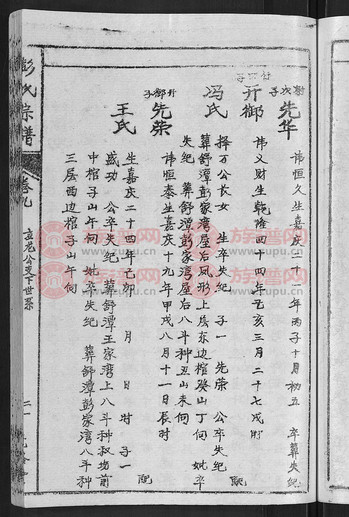 树次子
先华 讳恒久生嘉庆 年丙子十月初五 卒葬失纪
开御 讳义财生乾隆四十四年乙亥三月二十七戌时 配
冯氏 择万公长女 生卒失纪 子一 先荣 公卒失纪
葬舒潭彭家湾屋后凤形上层东边棺癸山丁向 妣卒
失纪 葬舒潭彭家湾屋后八斗种丑山未向
开御子
先荣 讳恒泰生嘉庆十九年甲戌八月十一日辰时 配
王氏 生嘉庆二十四年己卯 月 日 时 子一
盛功 公卒失纪 葬舒潭王家湾上八斗种叔坊前
中棺子山午向 妣卒失纪 葬舒潭彭家湾八斗种
三层西边棺子山午向
彭氏宗谱
卷九
公支下世系
族谱网
www.zupu.cn